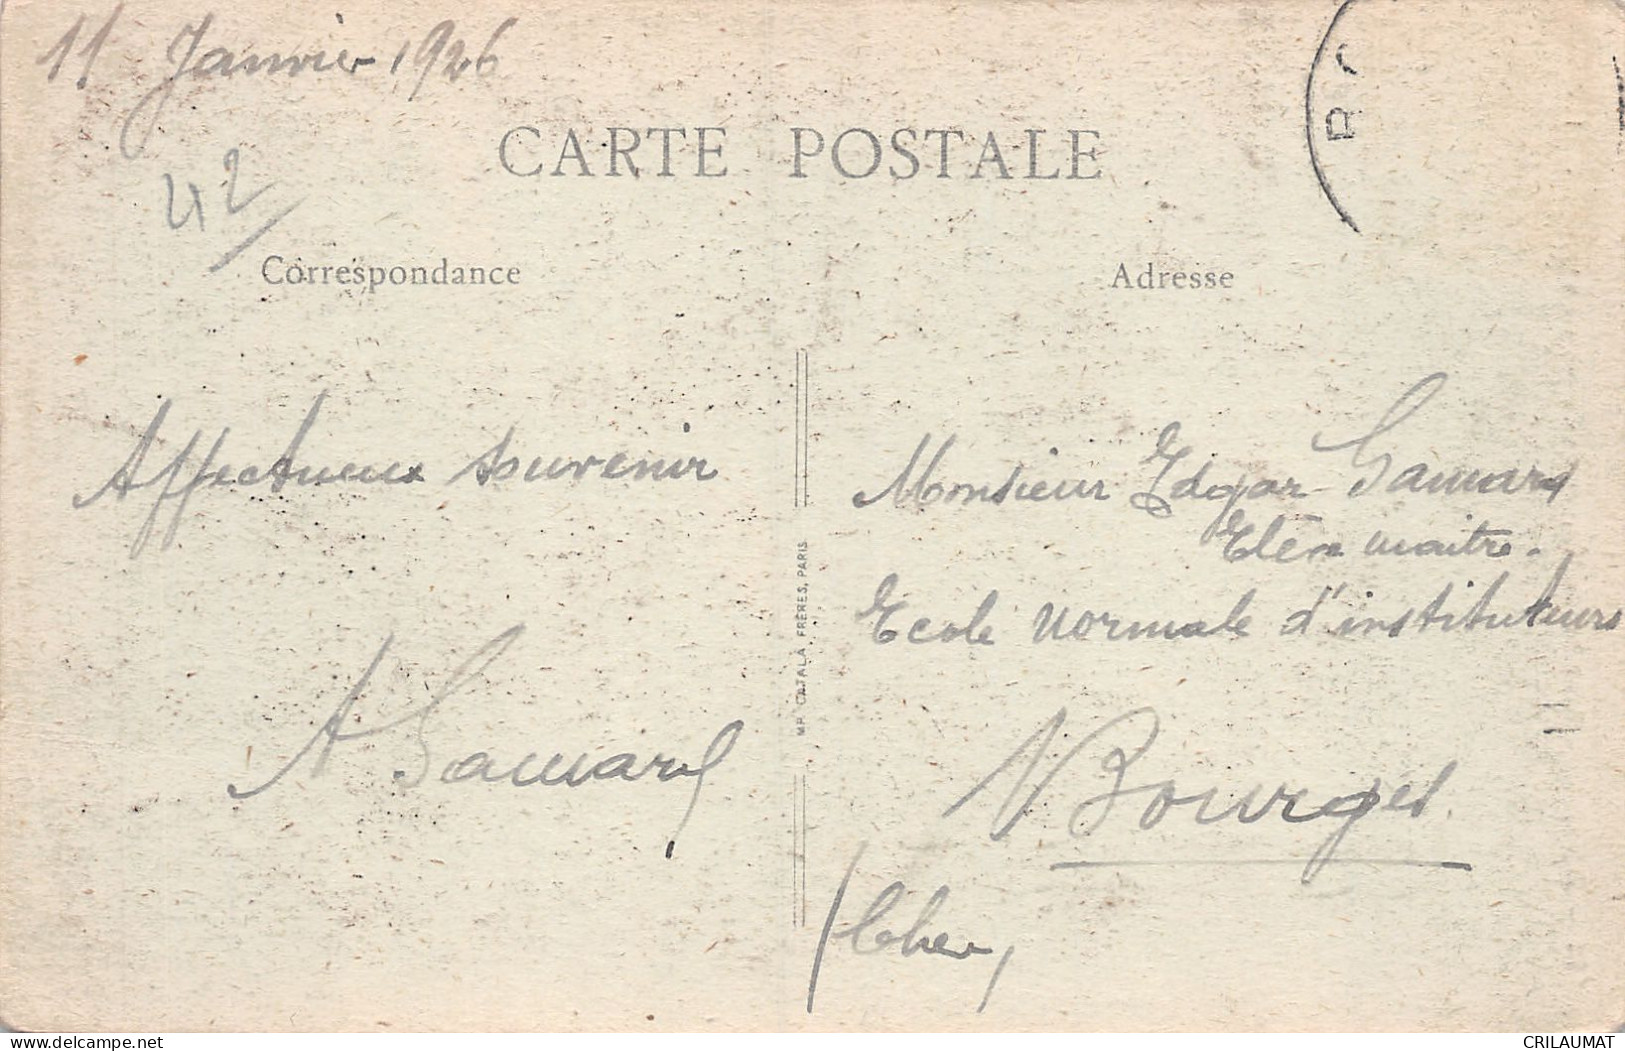 11 Janvier 1926
CARTE POSTALE
42
Correspondance
Adresse
Affectueux souvenir
A Gamard
Monsieur Edgar Gamard
Elève maitre.
Ecole normale d'instituteurs
Bourges
(Cher)
IMP. CATALA FRÈRES, PARIS
www.delcampe.net
CRILAUMAT